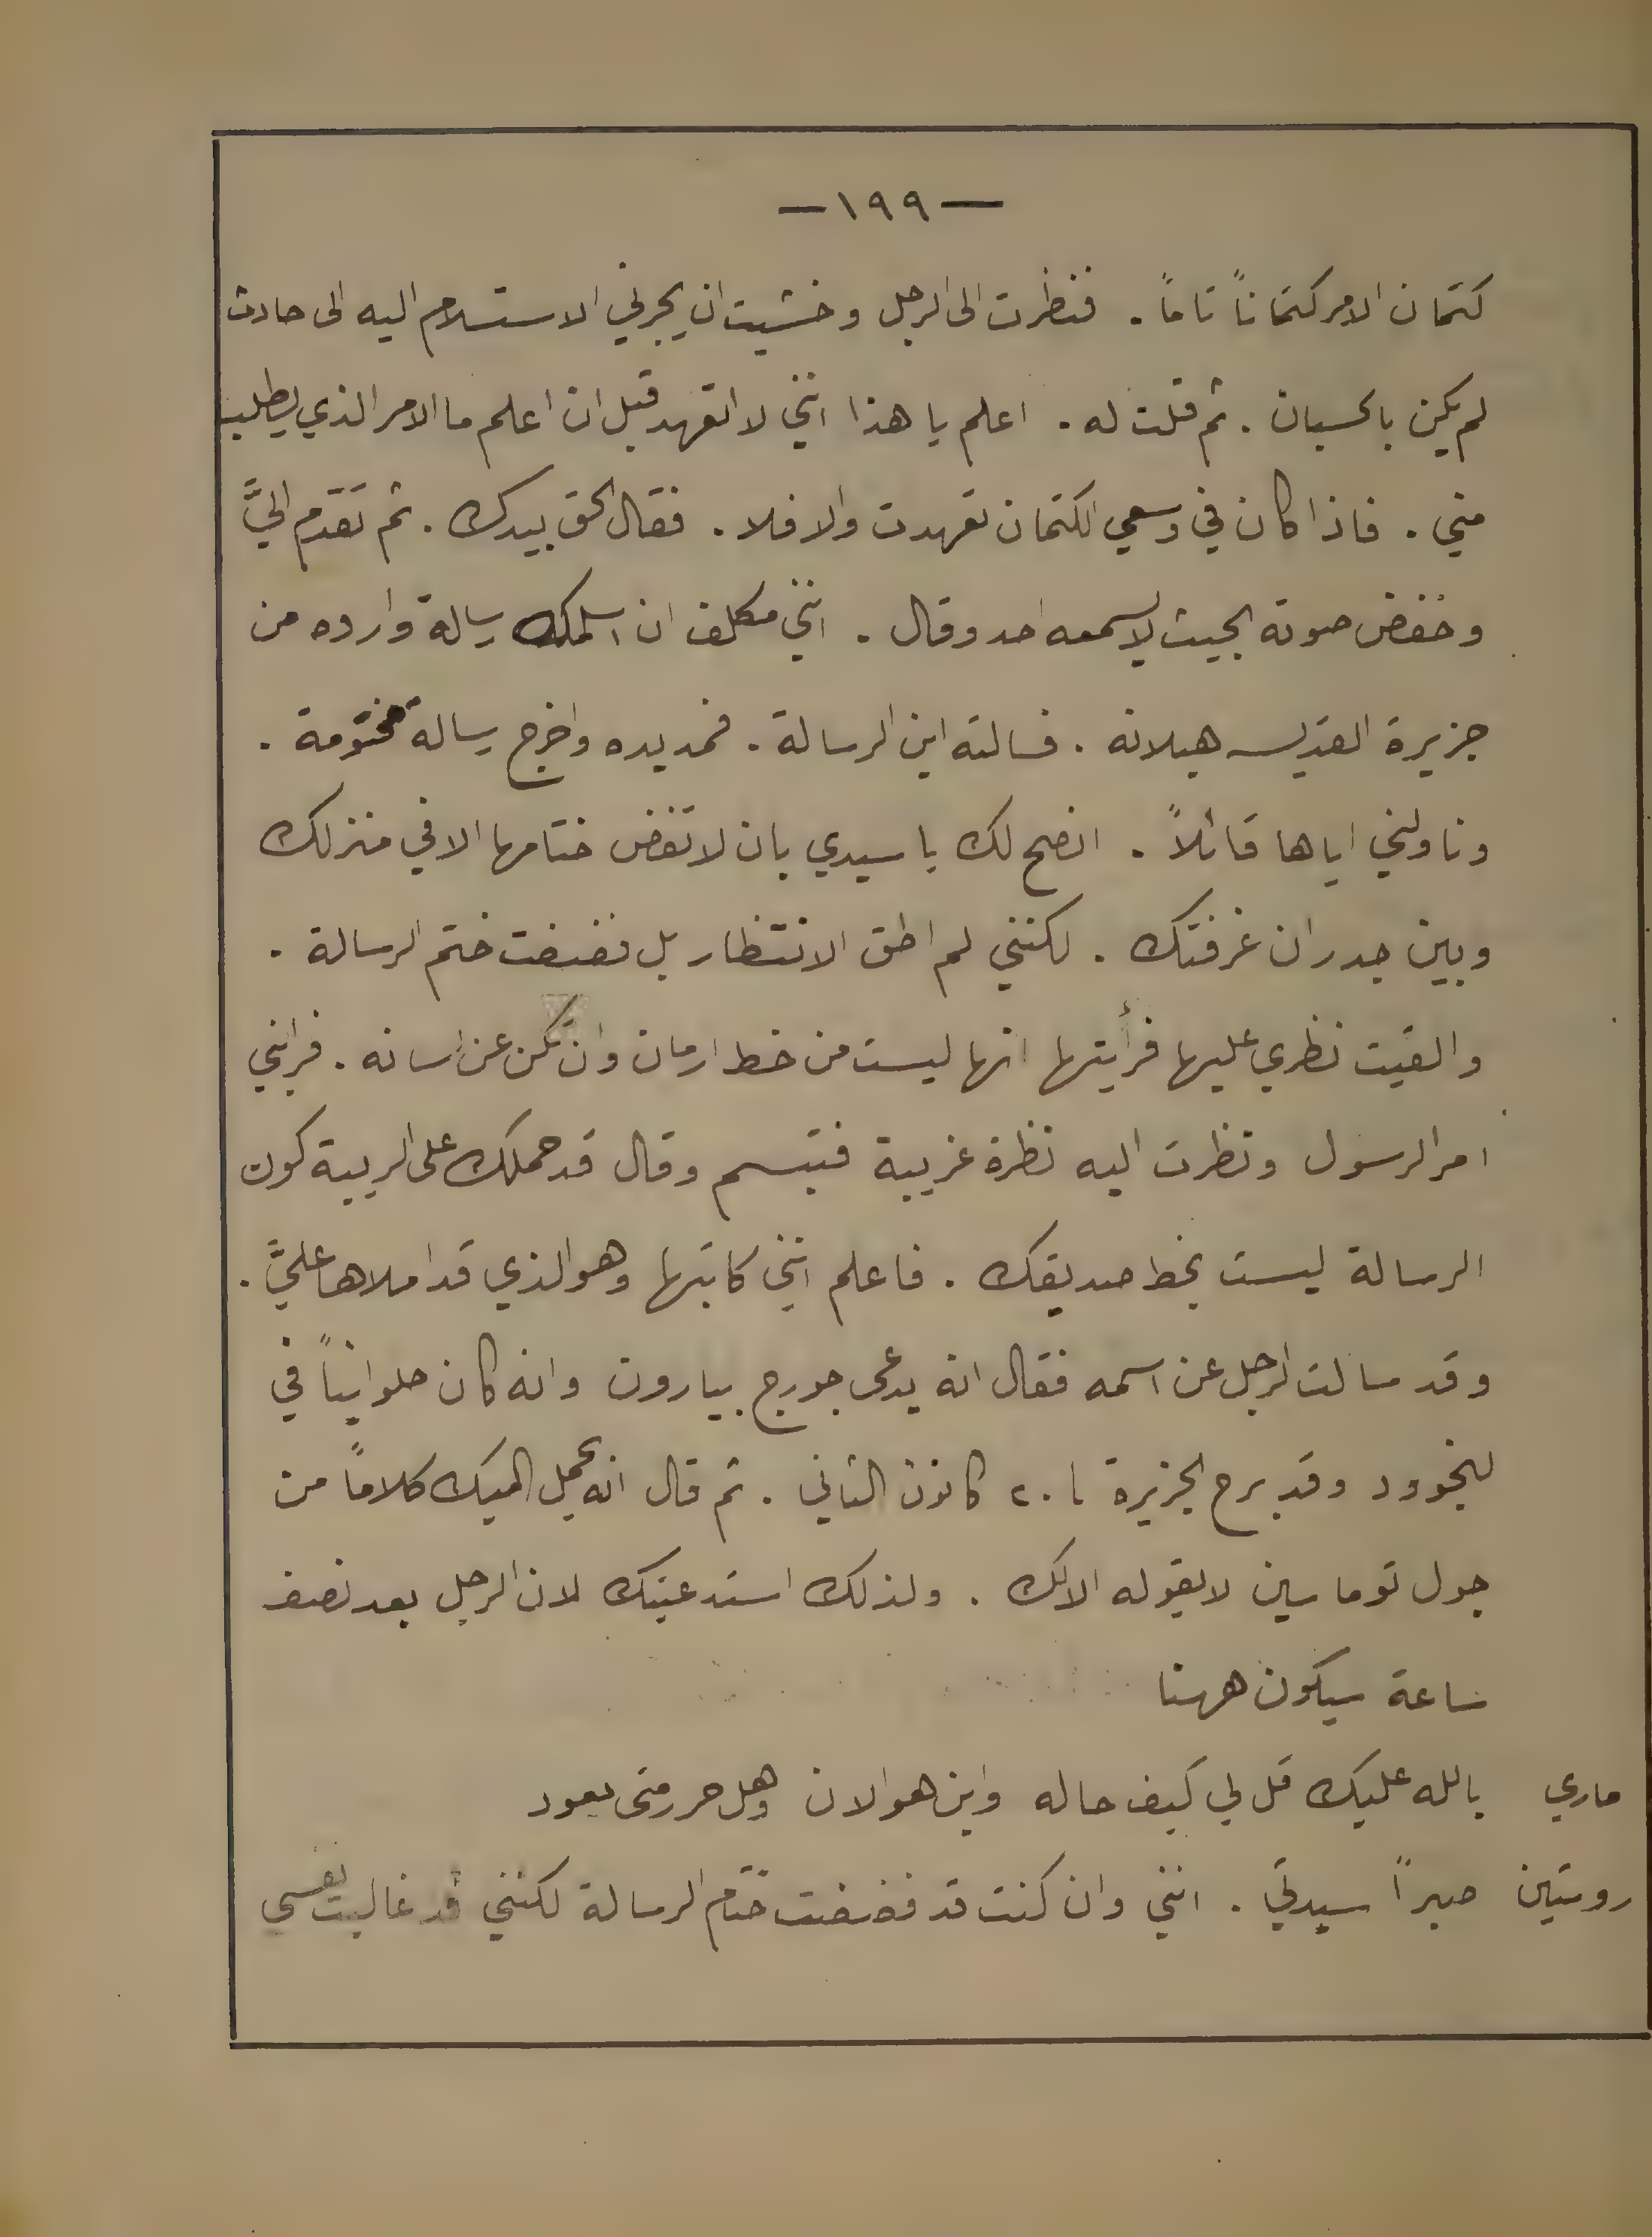 — ١٩٩ —
كتمان الامر كتماناً تاماً . فنظرت الى الرجل وخشيت ان يجرني الاستسلام اليه الى حادث
لم يكن بالحسبان . ثم قلت له . اعلم يا هذا انني لا اتعهد قبل ان اعلم ما الامر الذي يطلب
مني . فاذا كان في وسعي الكتمان تعهدت والا فلا . فقال الحق بيدك . ثم تقدم اليَّ
وخفض صوته بحيث لا يسمعه احد وقال . انني مكلف ان اسلمك رسالة وارده من
جزيرة القديسه هيلانه . فسالته اين الرسالة . فمد يده واخرج رسالة مختومة .
وناولني اياها قائلاً . انصح لك يا سيدي بان لا تفض ختامها الا في منزلك
وبين جدران غرفتك . لكنني لم اطق الانتظار بل ففضفت ختم الرسالة .
والقيت نظري عليها فرأيتها انها ليست من خط ارمان وان تكن عن لسانه . فرابني
امر الرسول ونظرت اليه نظرة غريبة فتبسم وقال قد حملك على الريبة كون
الرسالة ليست بخط صديقك . فاعلم انني كاتبها وهو الذي قد املاها عليَّ .
وقد سالت الرجل عن اسمه فقال انه يدعى جورج بيارون وانه كان حلوانياً في
لنجوود وقد برح الجزيرة لـ ٢٠ كانون الثاني . ثم قال انه يحمل اليك كلاماً من
جول توماسين لا يقوله الا لك . ولذلك استدعيتك لان الرجل بعد نصف
ساعة سيكون ههنا
ماري بالله عليك قل لي كيف حاله واين هو الان وهل حر ومتى يعود
روستين صبراً سيدتي . انني وان كنت قد فضضت ختام الرسالة لكنني قد غالبت نفسي